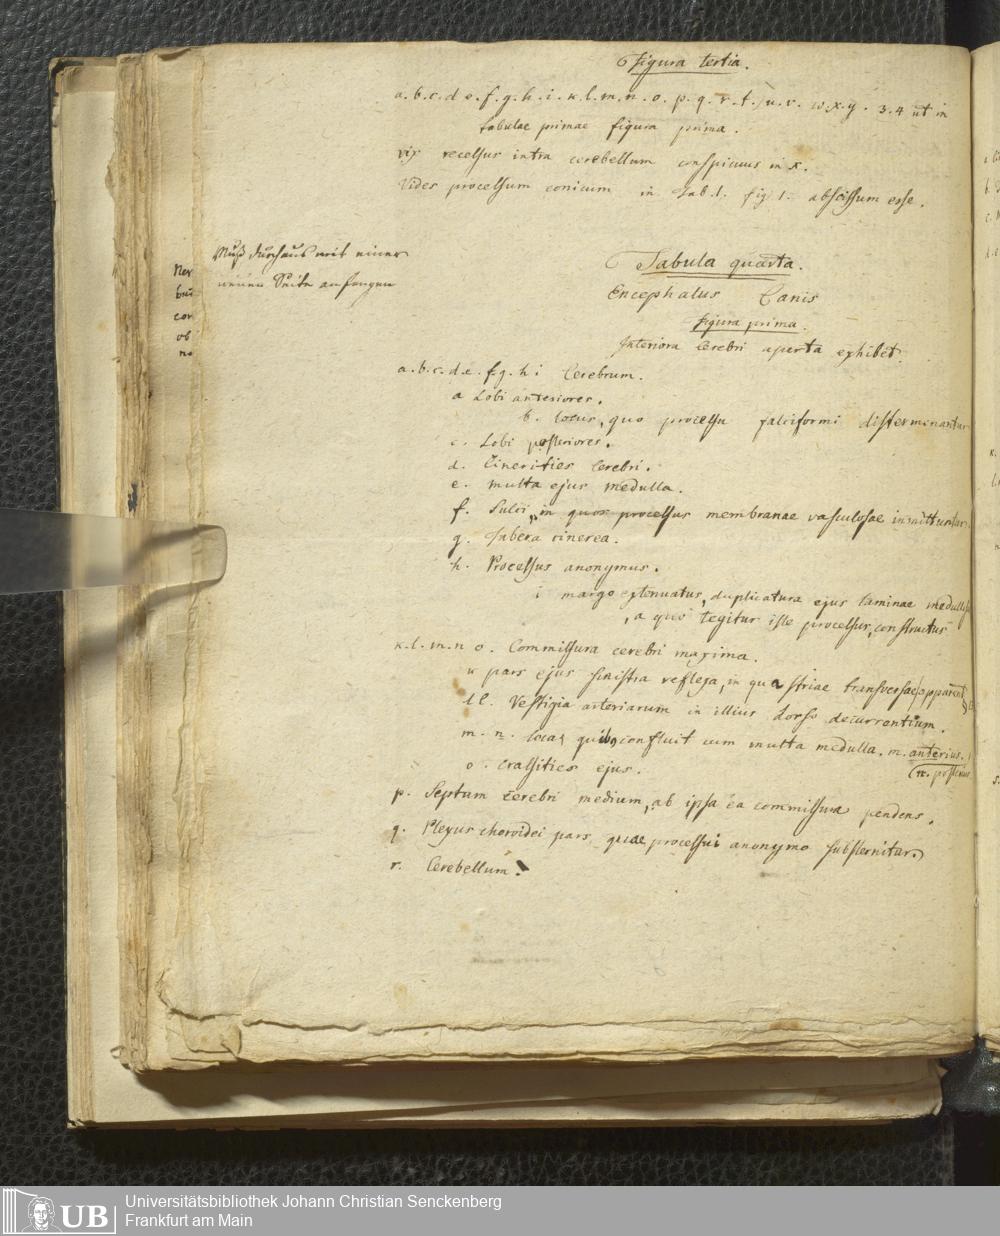 Figura tertia.
a.b.c.d.e.f.g.h.i.k.l.m.n.o.p.q.r.t.u.v.w.x.y. 3.4 ut in
tabulae primae figura prima.
vix recessus intra cerebellum conspicuus in x.
Vides processum conicum in Tab. 1. fig 1. abscissum esse.
Muß durchaus mit einer
neuen Seite anfangen
Ner
cor
ob
Tabula quarta.
Encephalus Canis
Figura prima.
Interiora Cerebri aperta exhibet.
a.b.c.d.e.f.g.h i Cerebrum.
a Lobi anteriores.
b. locus, quo processu falciformi disterminantur
c. Lobi posteriores.
d. Cinerities Cerebri.
e. multa ejus medulla.
f. Sulci, in quos processus membranae vasculosae immittuntur.
g. Tubera cinerea.
h. Processus anonymus.
i margo extenuatus, duplicatura ejus laminae
, a quo tegitur iste processus, constructus
k.l.m.n o. Commissura cerebri maxima.
k pars ejus sinistra reflexa, in qua striae transversae apparent
ll. Vestigia arteriarum in illius dorso decurrentium.
m. n. loca, quibus confluit cum multa medulla. m. anterius.
n. posterius
o. Crassities ejus.
p. Septum cerebri medium, ab ipsa ea commissura pendens.
q. Plexus choroidei pars, quae processui anonymo substernitur.
r. Cerebellum.
UB
Universitätsbibliothek Johann Christian Senckenberg
Frankfurt am Main